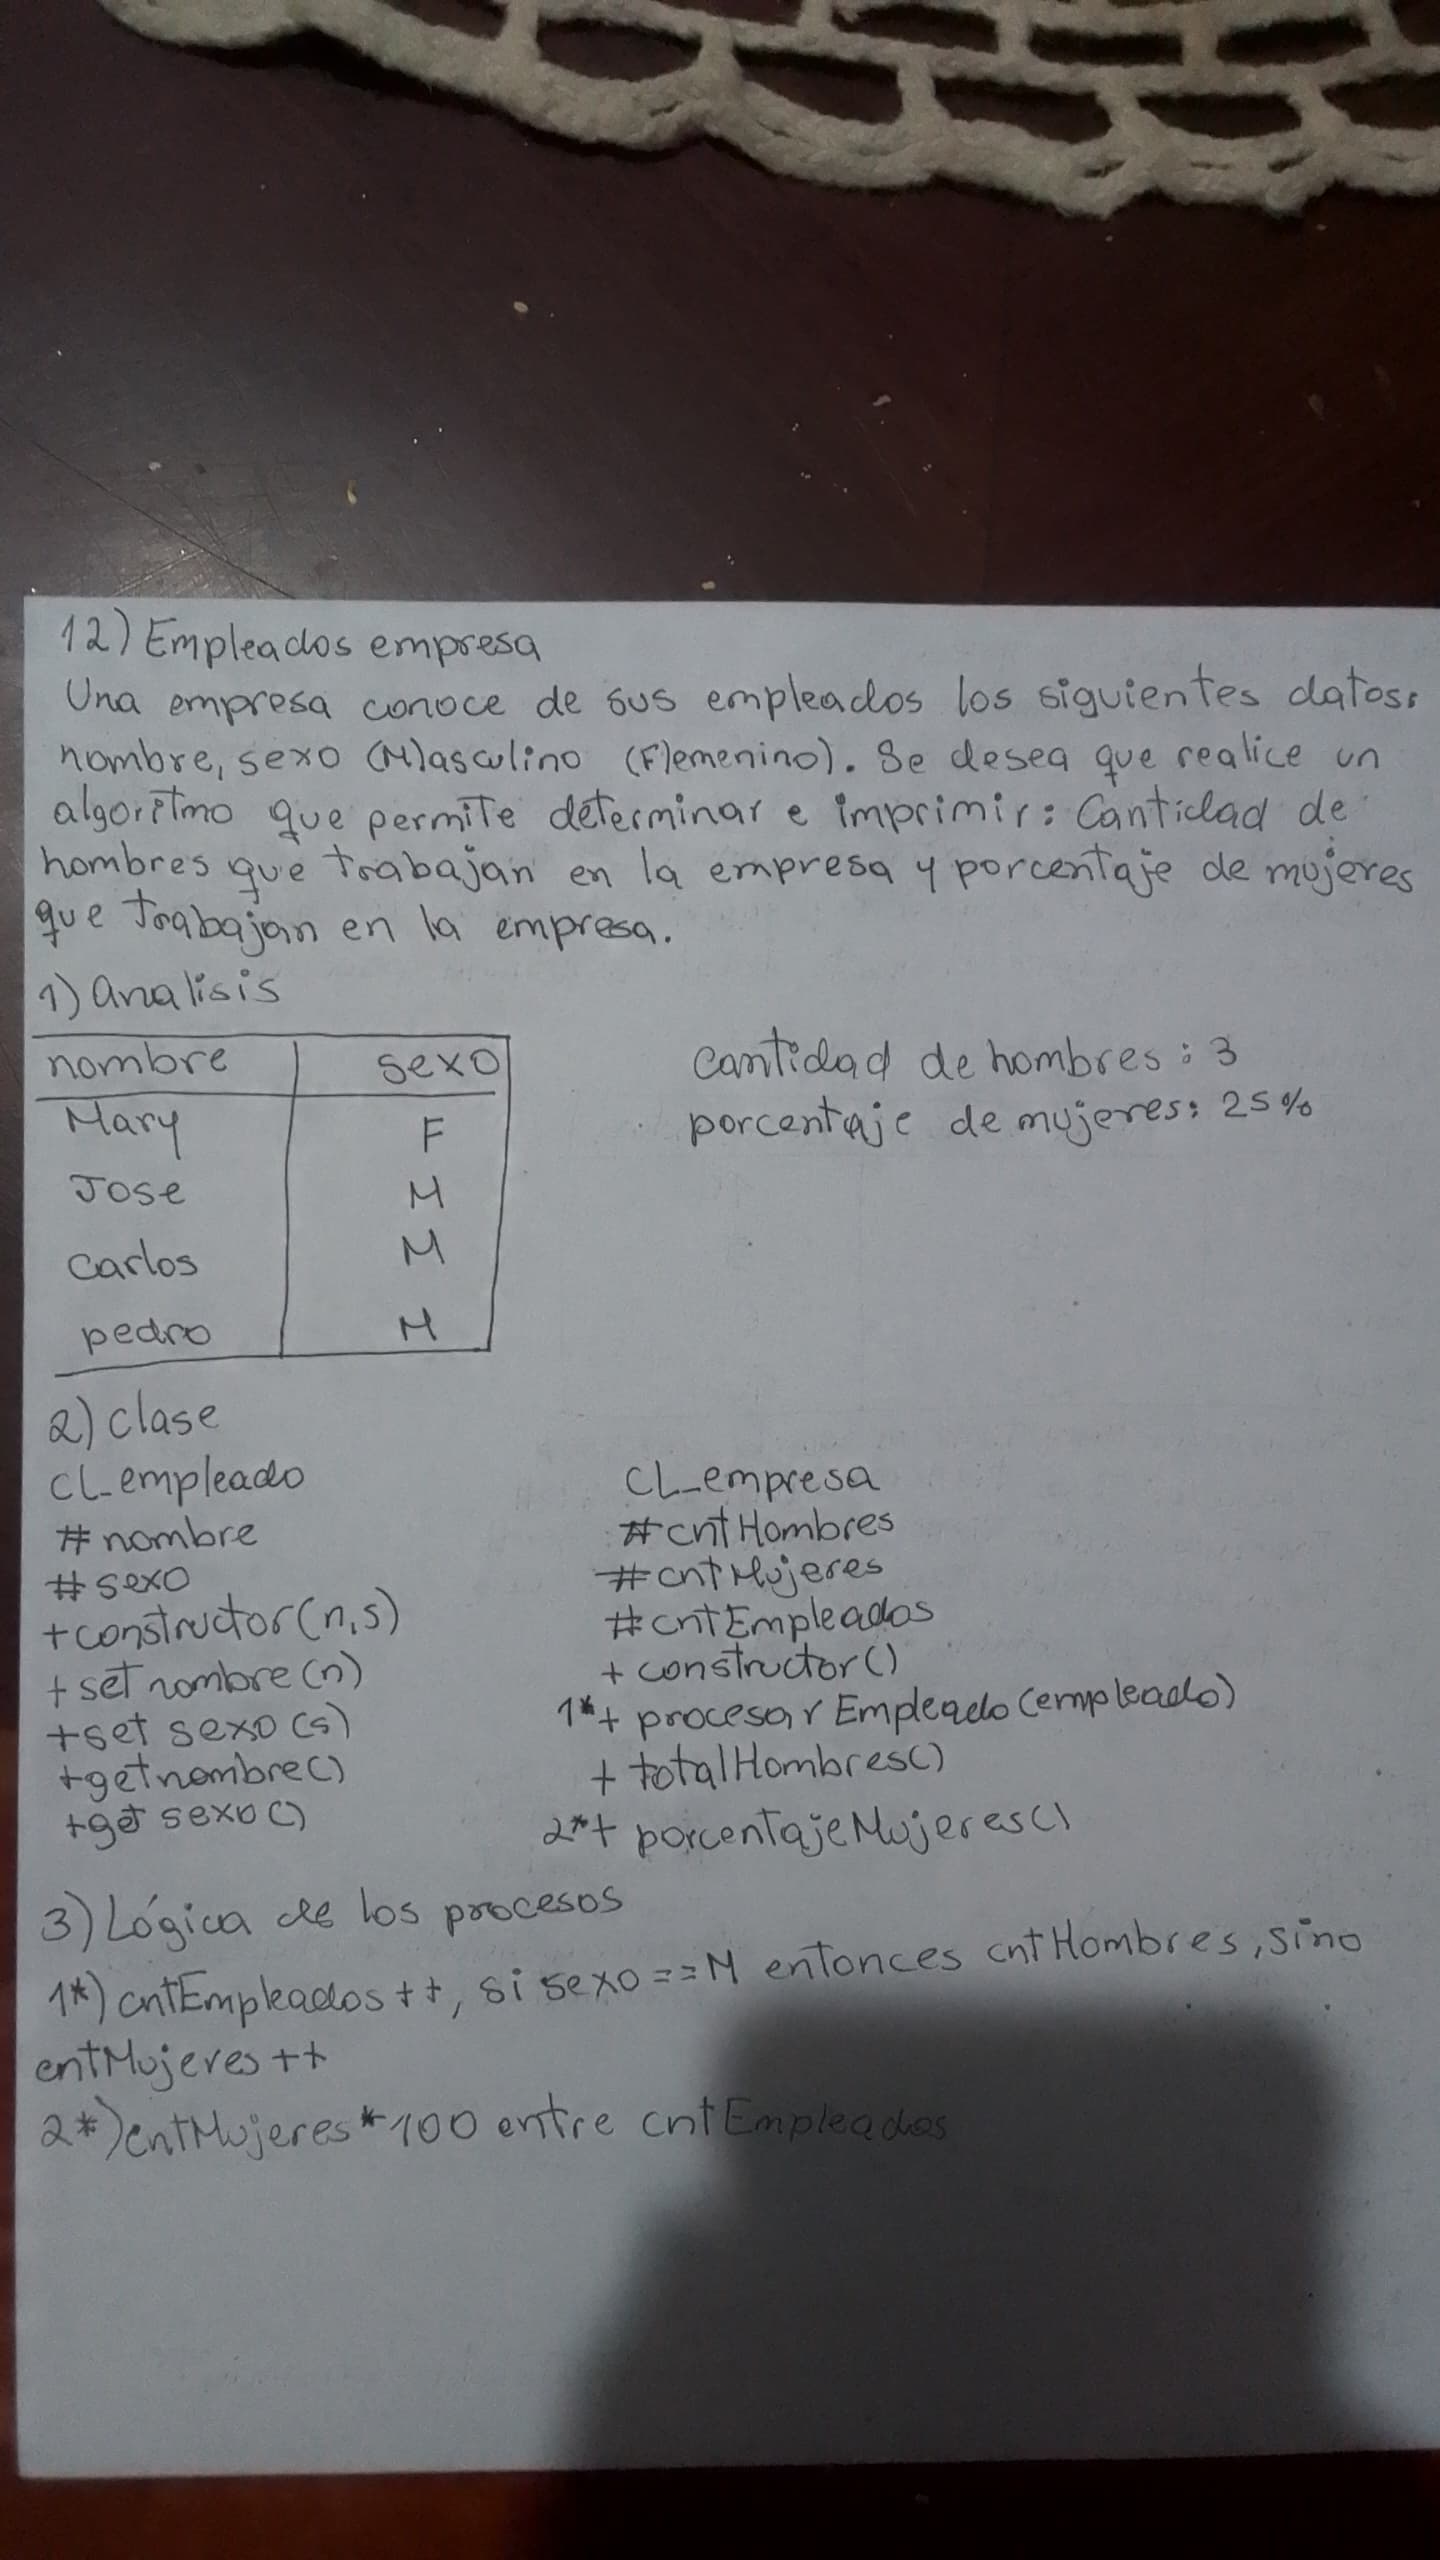 12) Empleados empresa
Una empresa conoce de sus empleados los siguientes datos:
nombre, sexo (M)asculino (F)emenino). Se desea que realice un
algoritmo que permite determinar e imprimir: Cantidad de
hombres que trabajan en la empresa y porcentaje de mujeres
que trabajan en la empresa.
1) Analisis
nombre sexo
Mary F
Jose M
Carlos M
pedro M
Cantidad de hombres: 3
porcentaje de mujeres: 25%
2) Clase
CL_empleado
#nombre
#sexo
+constructor(n,s)
+set nombre(n)
+set sexo(s)
+getnombre()
+get sexo()
CL_empresa
#cntHombres
#cntMujeres
#cntEmpleados
+constructor()
1*+ procesarEmpleado(empleado)
+ totalHombres()
2*+ porcentajeMujeres()
3) Lógica de los procesos
1*) cntEmpleados++, si sexo==M entonces cntHombres, sino
cntMujeres++
2*) cntMujeres*100 entre cntEmpleados